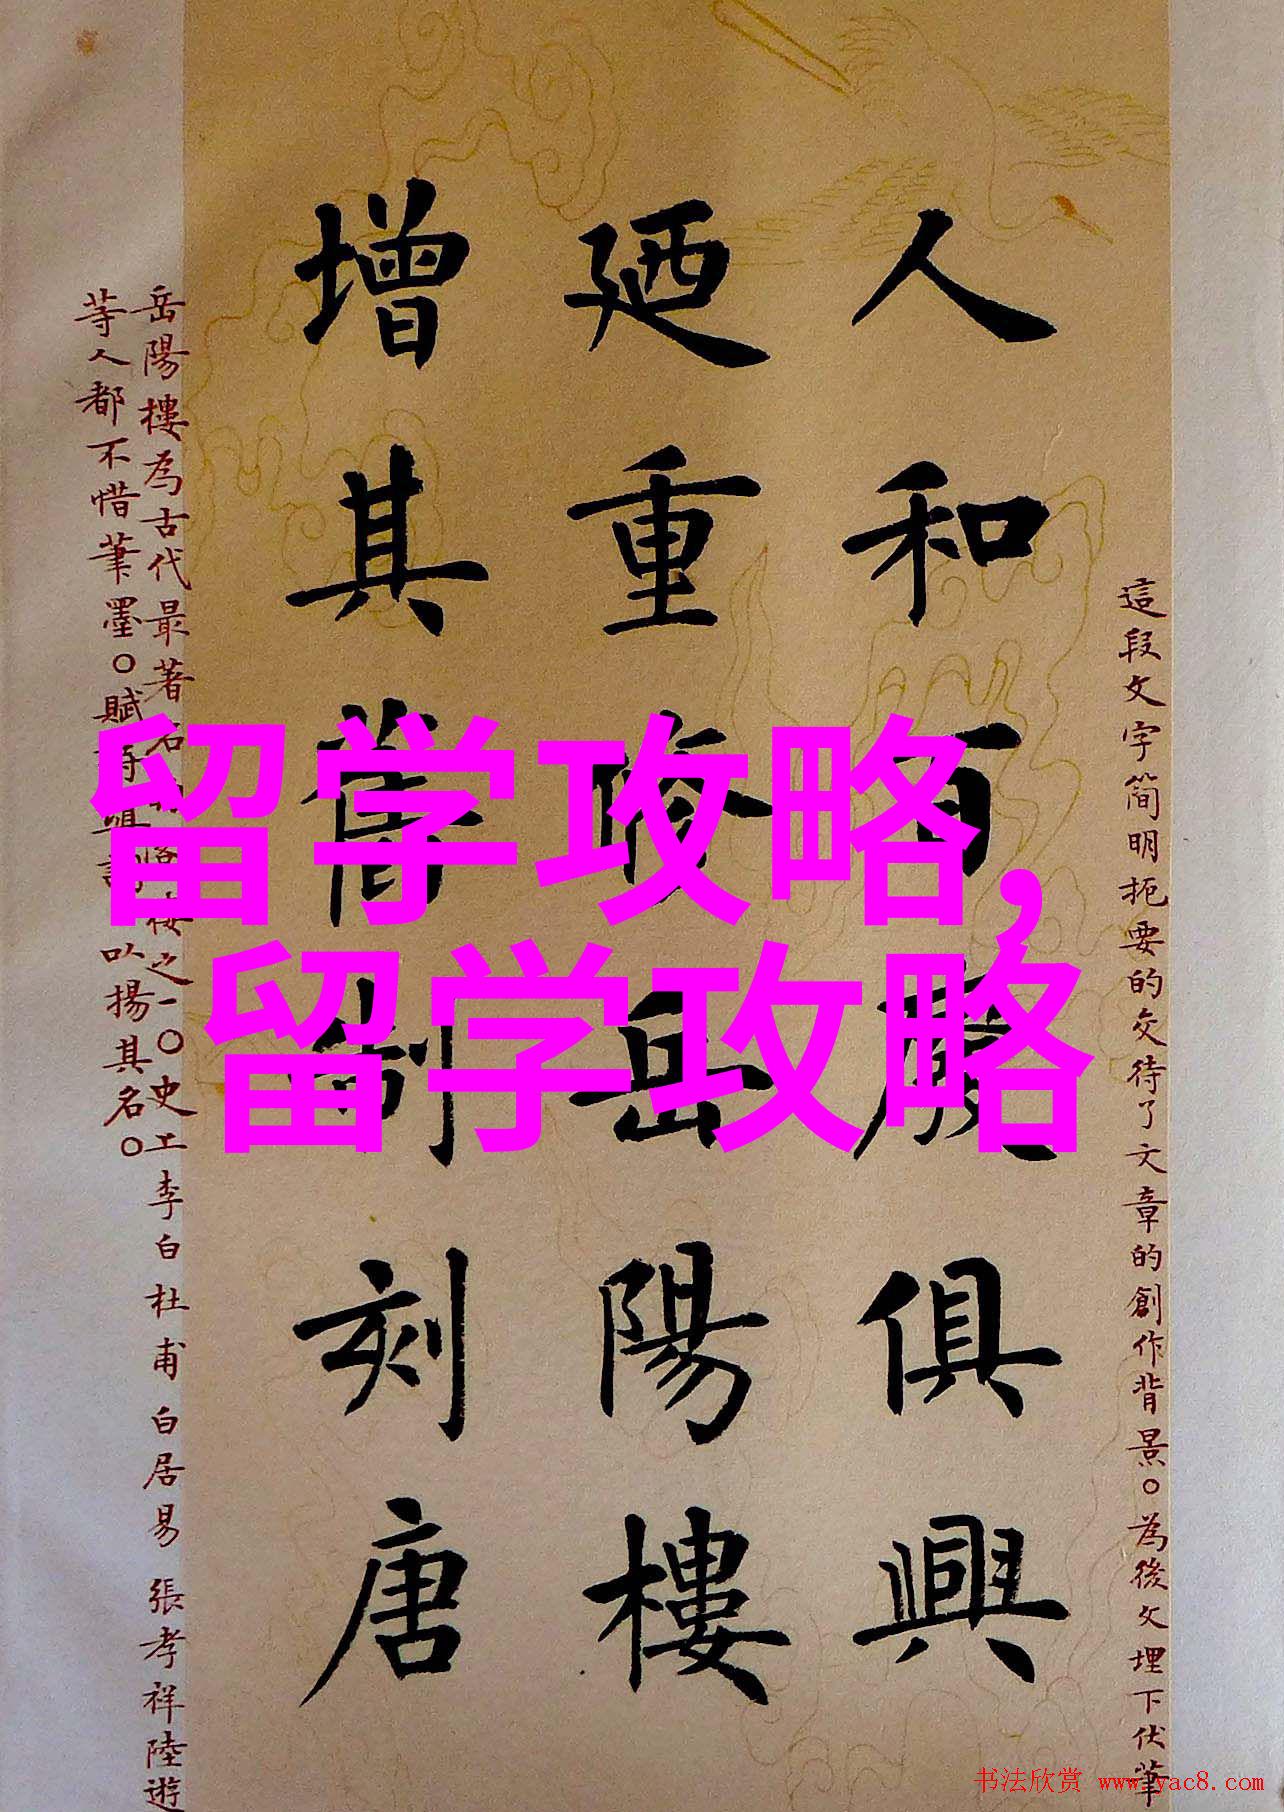 人和百廢俱興
廼重修岳陽樓
增其舊制刻唐
這段文字简明扼要的交待了文章的創作背景。為後文埋下伏筆
岳陽樓為古代最著名
之一。史上李白杜甫白居易張孝祥陸遊
等人都不惜筆墨。賦詩
以揚其名。
留学攻略,
留学攻略
书法欣赏 www.yac8.com